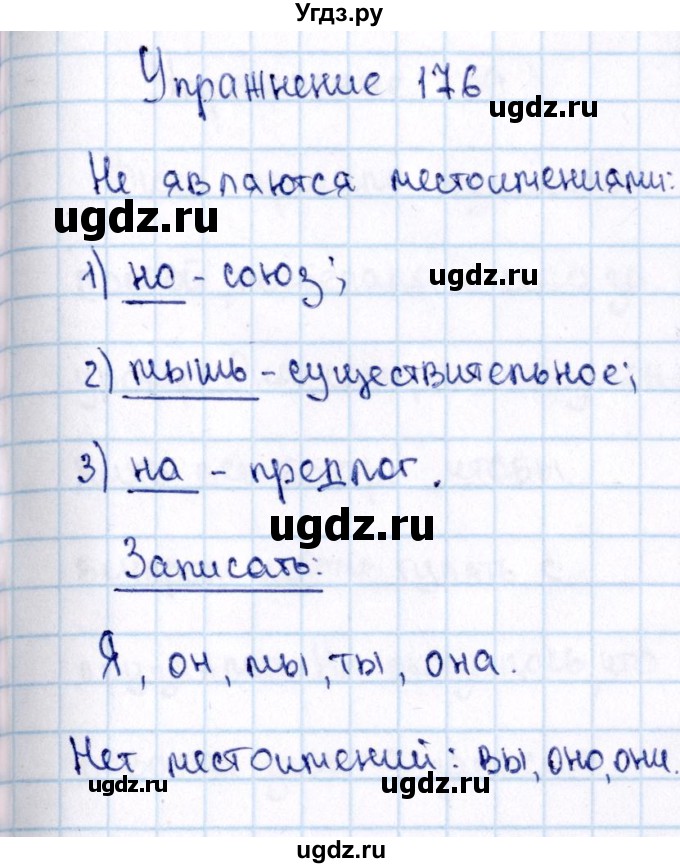 Угдз.ру
Упражнение 176
ugdz.ru
Не являются местоимениями:
ugdz.ru
1) но - союз;
ugdz.ru
2) мышь - существительное;
3) на - предлог.
ugdz.ru
Записать:
Я, он, мы, ты, она.
Нет местоимений: вы, оно, они.
ugdz.ru
ugdz.ru
ugdz.ru